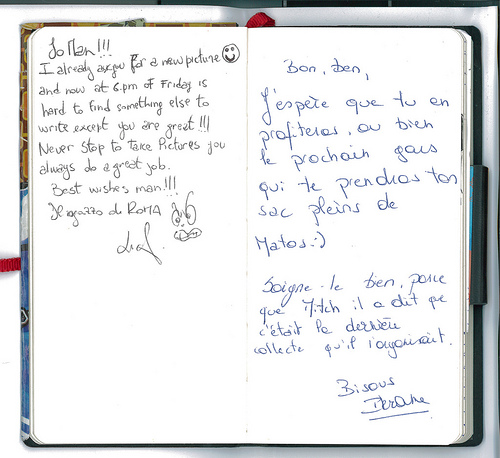 Jo Man!!!
I already ask you for a new picture
and now at 6.pm of Friday is
hard to find something else to
write except you are great!!!
Never stop to take Pictures you
always do a great job.
Best wishes man!!!
ragazzo di ROMA
Bon, ben,
J'espère que tu en
profiteras, ou bien
le prochain gars
qui te prendras ton
sac pleins de
Matos :)
Soigne-le bien, parce
que Mitch il a dit que
c'était la dernière
collecte qu'il organisait.
Bisous